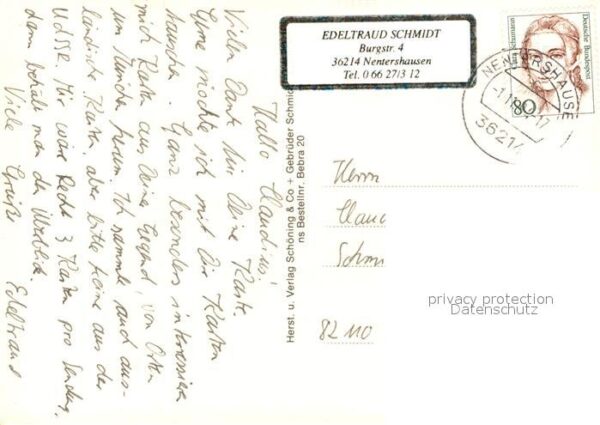 Hallo Claudius!
Vielen Dank für Deine Karte.
Gerne möchte ich mit Dir Karten
tauschen. Ganz besonders interessieren
mich Karten aus Deiner Gegend, von Orten
um München herum. Ich sammle auch aus-
ländische Karten, aber bitte keine aus der
UdSSR. Mir wäre Recht 3 Karten pro Sendung,
dann behält man den Überblick.
Viele Grüße Edeltraud
Herst. u. Verlag Schöning & Co + Gebrüder Schmidt
ns Bestellnr. Bebra 20
EDELTRAUD SCHMIDT
Burgstr. 4
36214 Nentershausen
Tel. 0 66 27/3 12
Schumann
Deutsche Bundespost
80
NENTERSHAUSE
36214
Herrn
Clauc
Schm
82110
privacy protection
Datenschutz